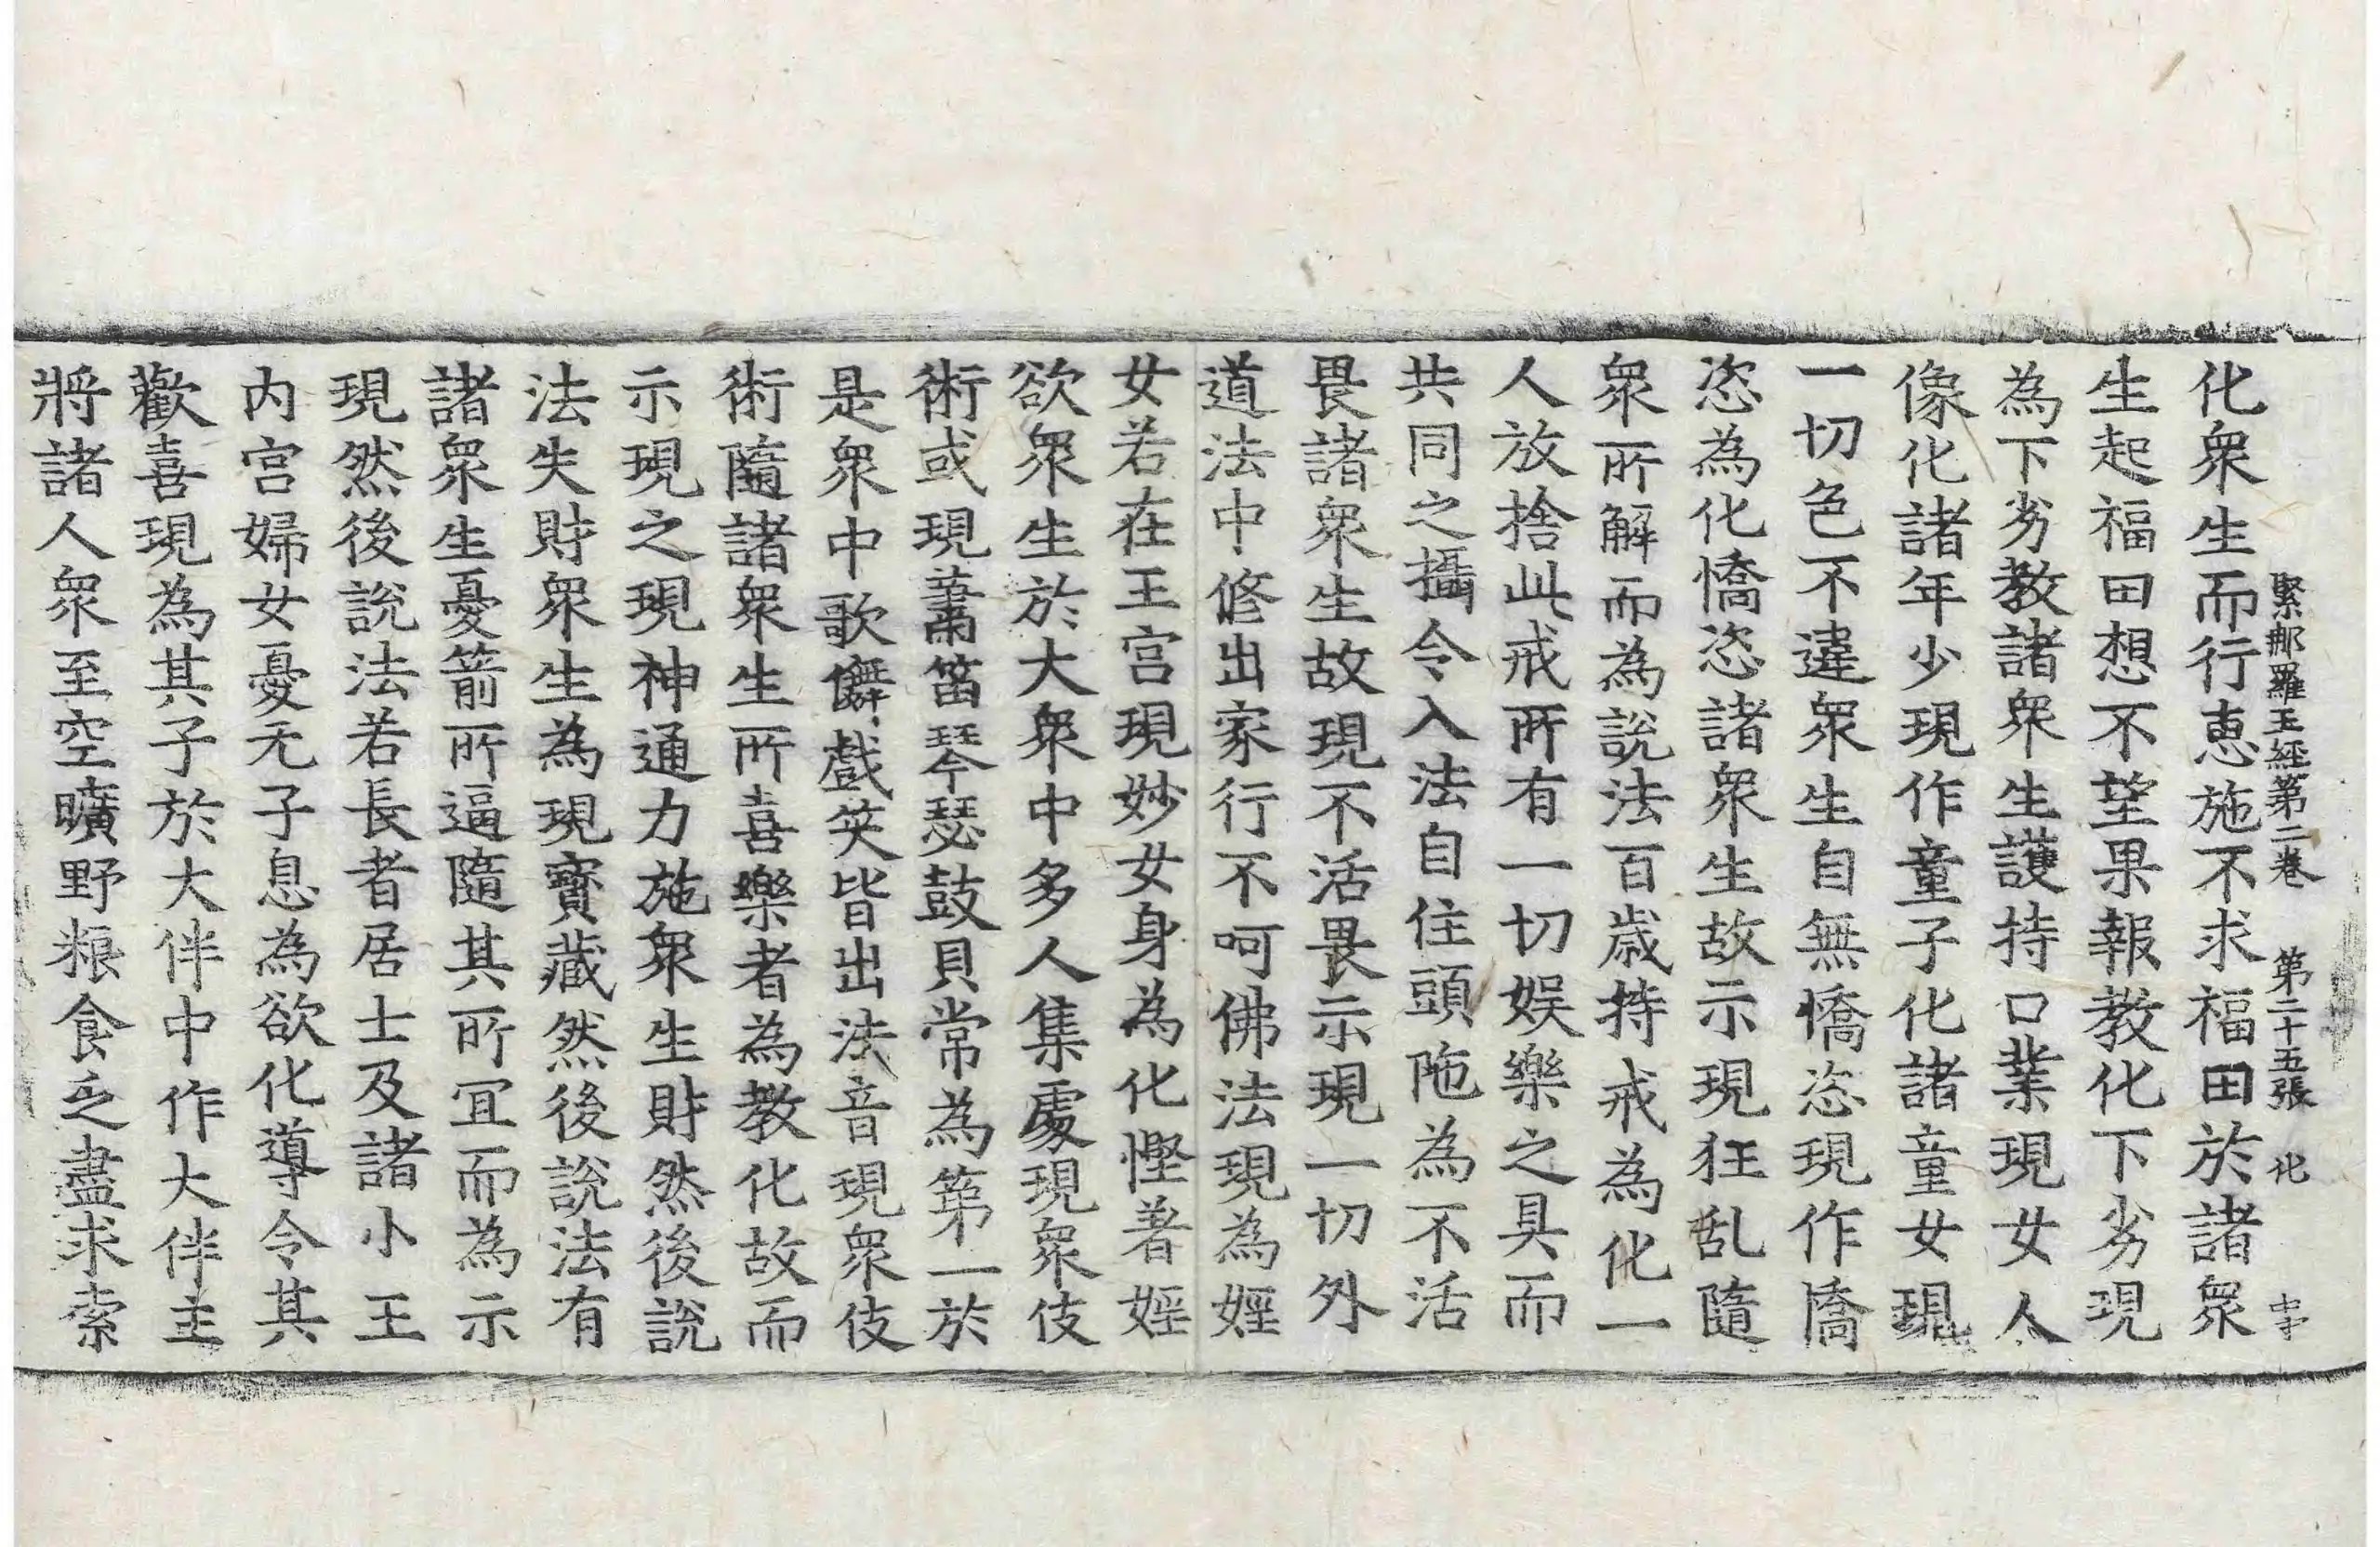 緊那羅王經第二卷　第二十五張　化
化衆生而行恵施不求福田於諸衆
生起福田想不望果報教化下劣現
為下劣教諸衆生護持口業現女人
像化諸年少現作童子化諸童女現
一切色不違衆生自無憍恣現作憍
恣為化憍恣諸衆生故示現狂乱隨
衆所解而為說法百歳持戒為化一
人放捨此戒所有一切娛樂之具而
共同之攝令入法自住頭陁為不活
畏諸衆生故現不活畏示現一切外
道法中修出家行不呵佛法現為婬
女若在王宮現妙女身為化慳著婬
欲衆生於大衆中多人集處現衆伎
術或現簫笛琴瑟鼓貝常為第一於
是衆中歌儛戲笑皆出法音現衆伎
術隨諸衆生所喜樂者為教化故而
示現之現神通力施衆生財然後說
法失財衆生為現寶藏然後說法有
諸衆生憂箭所逼隨其所冝而為示
現然後說法若長者居士及諸小王
内宮婦女憂无子息為欲化導令其
歡喜現為其子於大伴中作大伴主
將諸人衆至空曠野粮食乏盡求索